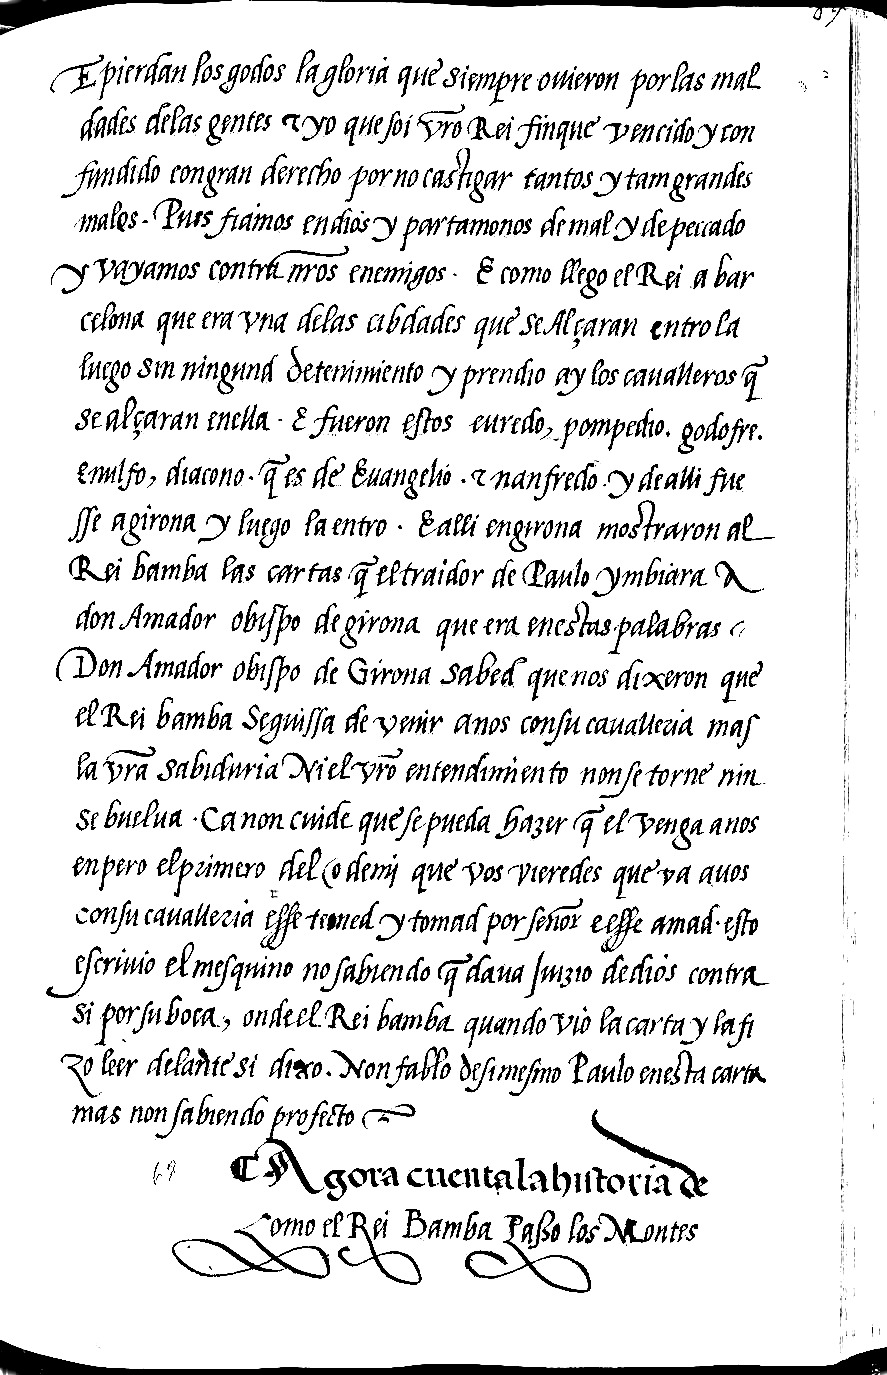 89
E pierdan los godos la gloria que siempre ouieron por las mal
dades delas gentes & yo que soi vr̃o Rei finque vencido y con
fundido con gran derecho por no castigar tantos y tam grandes
males. Pues fiamos en dios y partamonos de mal y de peccado
y vayamos contra nr̃os enemigos. E como llego el Rei a bar
celona que era vna delas cibdades que se Alçaran entro la
luego sin ningund detenimiento y prendio ay los caualleros q̃
se alçaran enella. E fueron estos euredo, pompedio. godofre.
enulfo, diacono. q̃ es de Euangelio. & nanfredo. y de alli fue
sse a girona y luego la entro. E alli en girona mostraron al
Rei bamba las cartas q̃ el traidor de Paulo ymbiara A
don Amador obispo de girona que era enestas palabras
Don Amador obispo de Girona sabed que nos dixeron que
el Rei bamba Seguissa de venir anos con su caualleria mas
la vr̃a sabiduria Ni el vr̃o entendimiento non se torne nin
se buelua. Ca non cuide que se pueda hazer q̃ el venga anos
en pero el primero del o demj que vos vieredes que va auos
con su caualleria esse tened y tomad por señor e esse amad. esto
escriuio el mesquino no sabiendo q̃ daua Juizio de dios contra
si por su boca, onde el Rei bamba quando vio la carta y la fi
zo leer delante si dixo. Non fablo de si mesmo Paulo enesta carta
mas non sabiendo profecto
69 Agora cuenta la historia de
Como el Rei Bamba Passo los Montes